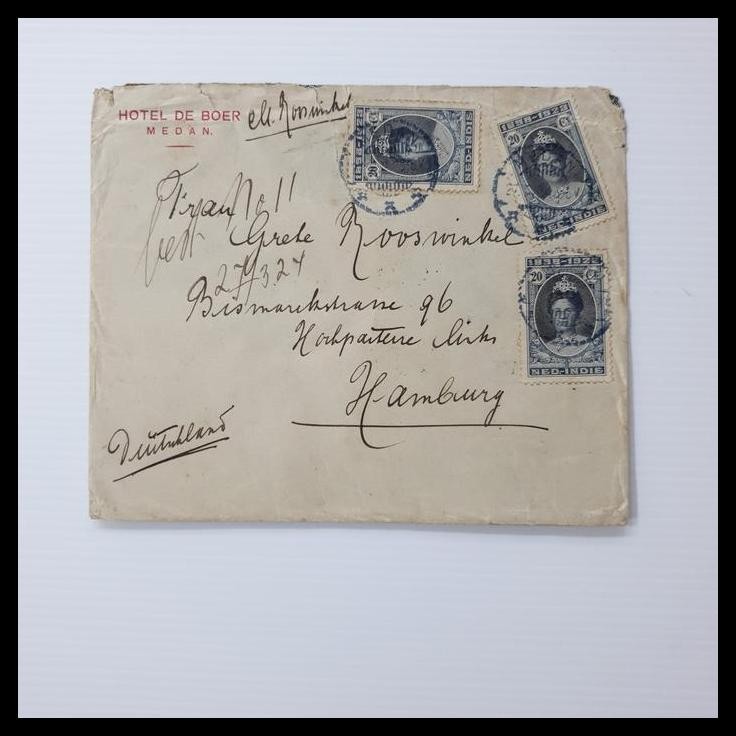 HOTEL DE BOER
MEDAN.
M. Rooswinkel
No 11
Grete Rooswinkel
27/3.24
Bismarckstrasse 96
Hochparterre links
Hamburg
Deutschland
1898-1923
20 Ct
NED-INDIE
1898-1923
20 Ct
NED-INDIE
1898-1923
20 Ct
NED-INDIE